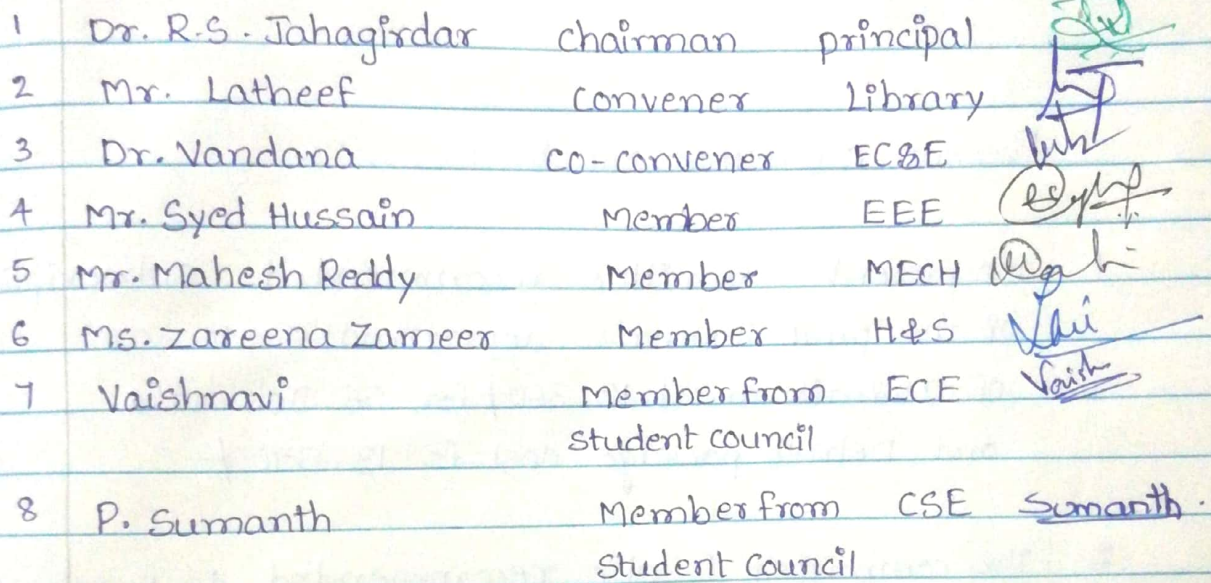 1 Dr. R.S. Jahagirdar chairman principal
2 Mr. Latheef convener Library
3 Dr. Vandana co-convener EC&E
4 Mr. Syed Hussain Member EEE
5 Mr. Mahesh Reddy Member MECH
6 Ms. Zareena Zameer Member H&S
7 Vaishnavi Member from ECE Vaish
student council
8 P. Sumanth Member from CSE Sumanth.
Student Council